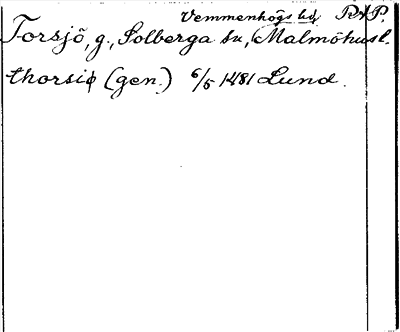 Vemmenhögs hd, P.
Torsjö, g., Solberga sn, Malmöhus l.
thorsiø (gen.) 6/5 1481 Lund.